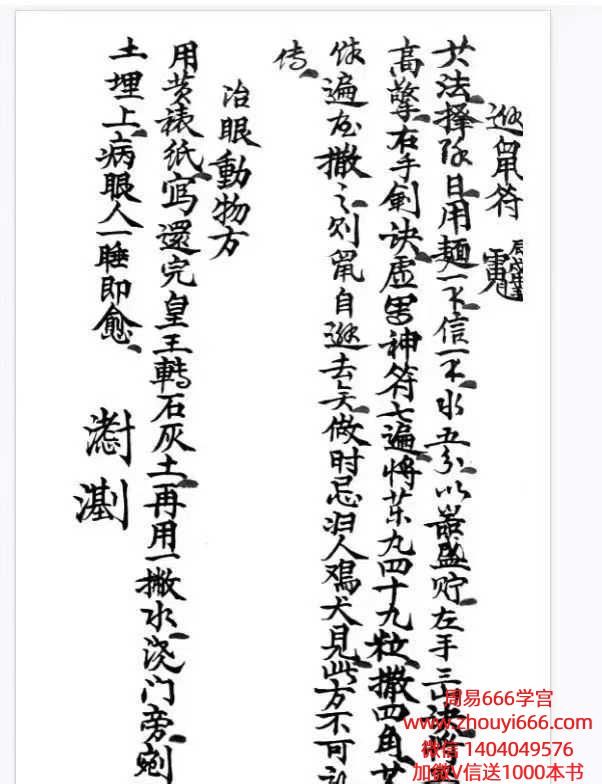 逊鼠符
其法择除日用麺一不信一不水五分以器盛贮左手三
高擎右手剣诀虚写神符七遍将药丸四十九粒撒四角
遍在撒之则鼠自逊去矣做时忌妇人鸡犬見此方不可
传
治眼動物方
用黄裱纸寫還完皇王轉石灰土再用一撇水浇门旁
土埋上病眼人一睡即愈
周易666学宫
www.zhouyi666.com
微信 1404049576
加微V信送1000本书